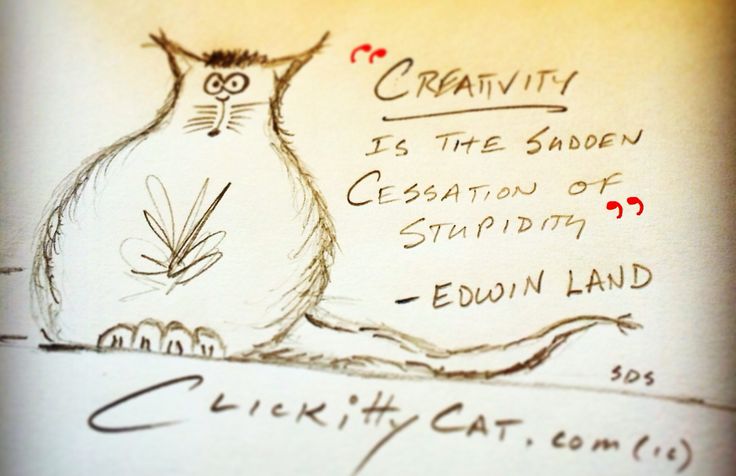 “CREATIVITY
IS THE SUDDEN
CESSATION OF
STUPIDITY”
-EDWIN LAND
SDS
CLICKITTYCAT.com(16)